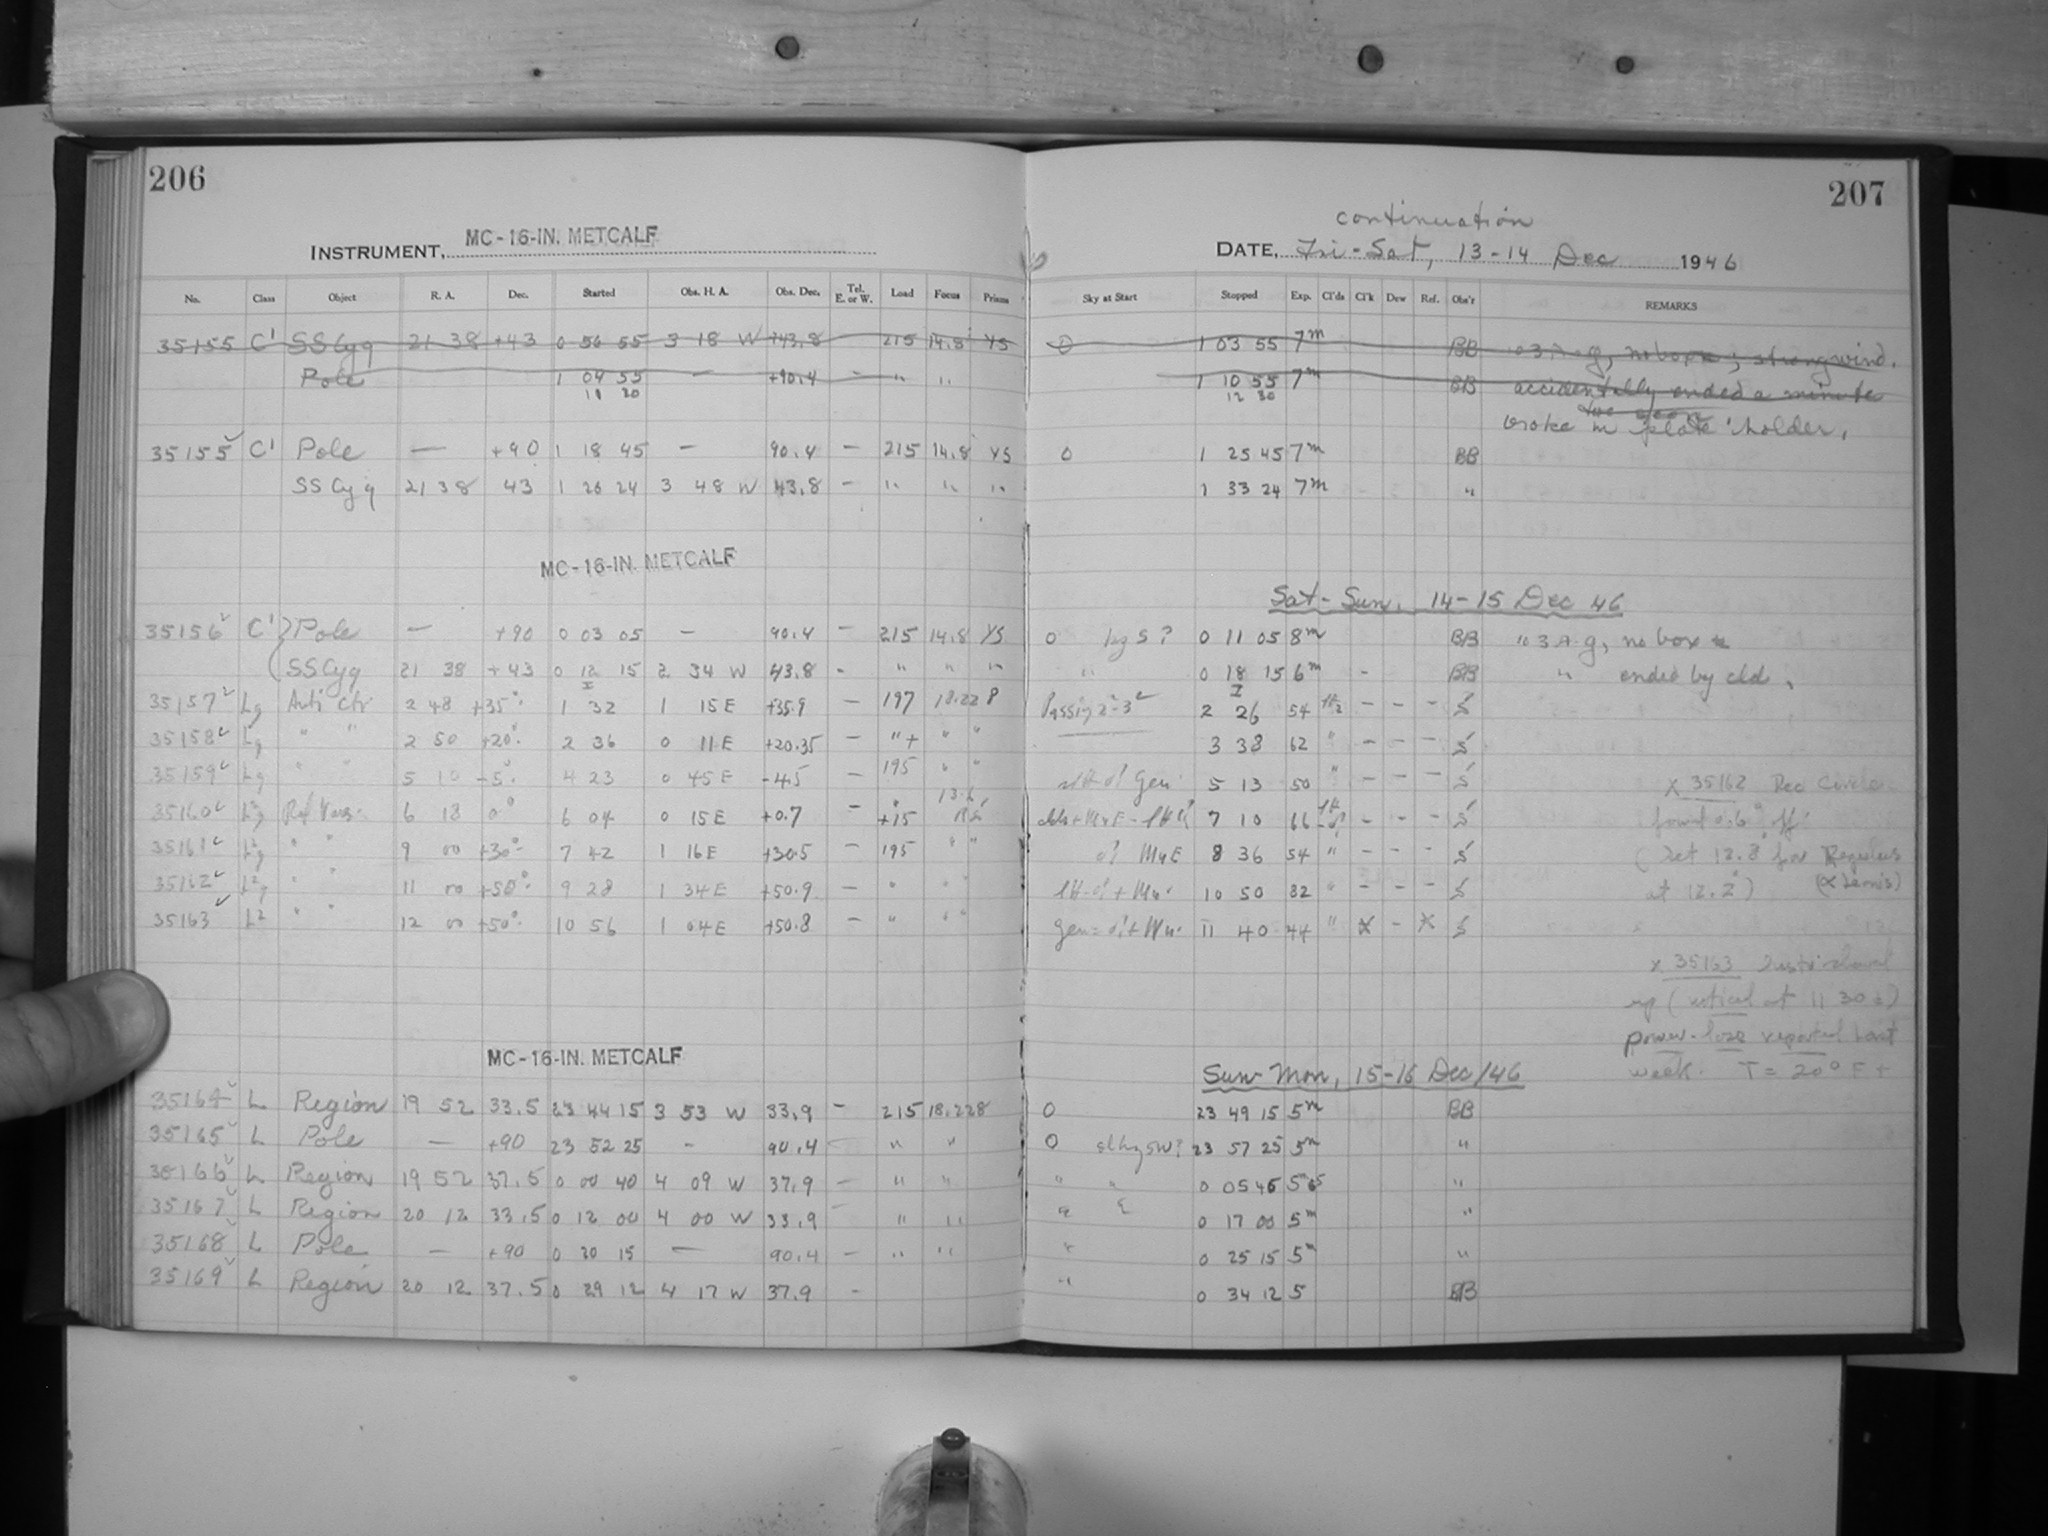 206
INSTRUMENT, MC-16-IN. METCALF
No. Class Object R. A. Dec. Started Obs. H. A. Obs. Dec. Tel. E. or W. Load Focus Prisms
35155 C' SS Cyg 21 38 +43 0 56 55 3 18 W +43.8 215 14.8 YS
Pole 1 04 55 — +90.4 — " "
11 20
35155 C' Pole — +90 1 18 45 — 90.4 — 215 14.8 YS
SS Cyg 21 38 43 1 26 24 3 48 W 43.8 - " " "
MC-16-IN. METCALF
35156 C' Pole — +90 0 03 05 — 90.4 — 215 14.8 YS
SS Cyg 21 38 +43 0 12 15 2 34 W 43.8 - " " "
35157 Lg Anti Ctr 2 48 +35° 1 32 1 15 E +35.9 — 197 18.228
35158 Lg " " 2 50 +20° 2 36 0 11 E +20.35 — "+ " "
35159 Lg " " 5 10 -5° 4 23 0 45 E -4.5 — 195 " "
35160 6 18 0° 6 04 0 15 E +0.7 —
35161 " " 9 00 +30° 7 42 1 16 E +30.5 — 195 " "
35162 " " 11 00 +50° 9 28 1 34 E +50.9 — " " "
35163 " " 12 00 +50° 10 56 1 04 E +50.8 — " " "
MC-16-IN. METCALF
35164 L Region 19 52 33.5 23 44 15 3 53 W 33.9 — 215 18.228
35165 L Pole — +90 23 52 25 - 90.4 — " "
35166 L Region 19 52 37.5 0 00 40 4 09 W 37.9 — " "
35167 L Region 20 12 33.5 0 12 00 4 00 W 33.9 — " "
35168 L Pole — +90 0 20 15 — 90.4 — " "
35169 L Region 20 12 37.5 0 29 12 4 17 W 37.9 -
207
continuation
DATE, Fri-Sat, 13-14 Dec 1946
Sky at Start Stopped Exp. Cl'ds Cl'k Dew Ref. Obs'r REMARKS
0 1 03 55 7m BB 103 A-g, no box; strong wind.
1 10 55 7m BB accidentally ended a minute
12 30 too soon
broke in plate holder.
0 1 25 45 7m BB
1 33 24 7m "
Sat-Sun, 14-15 Dec 46
0 hg S? 0 11 05 8m BB 103 A-g, no box
" 0 18 15 6m - BB " ended by cld.
Passing 2 26 54 - - -
3 38 62 " - - -
Gen. 5 13 50 " - - -
7 10 66 - - -
8 36 54 " - - -
10 50 82 " - - -
11 40 44 " X - X
x 35162 Dec Circle
found 0.6° off
(Set 12.8° for Regulus
at 12.2°)
x 35163
up (vertical at 11 30±)
power-loss reported last
week. T = 20° F +
Sun-Mon, 15-16 Dec/46
0 23 49 15 5m BB
0 sl hg SW? 23 57 25 5m "
" " 0 05 45 "
" 0 17 00 5m "
" 0 25 15 5m "
" 0 34 12 5 BB